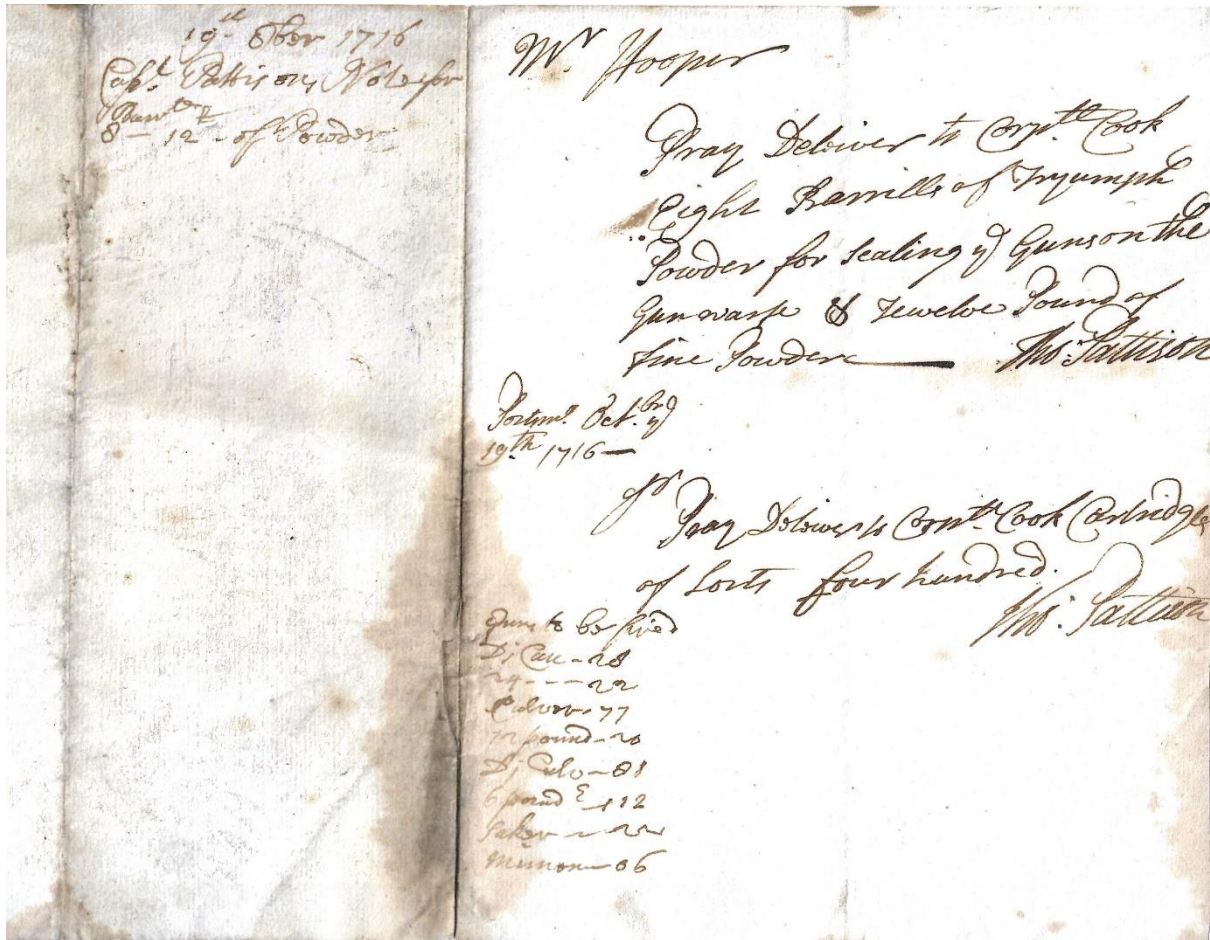 19th 8ber 1716
Capt. Pattisons Note for
8 - 12 - of Powder
Mr Hooper
Pray Deliver to Corpll Cook
Eight Barrills of Tryumph
Powder for Scaling ye Guns on the
Gunwarfe & Twelve Pound of
fine Powder Tho: Pattison
Portsmo. Octbr ye
19th 1716
Sr
Pray Deliver to Corpll Cook Cartridges
of Sorts four hundred.
Tho: Pattison
Guns to be fired
Dj Can - 28
24 - - - 22
Culver - 77
12 pound - 20
Dj Culv - 81
6 pound - 112
Saker - 22
Minion - 06